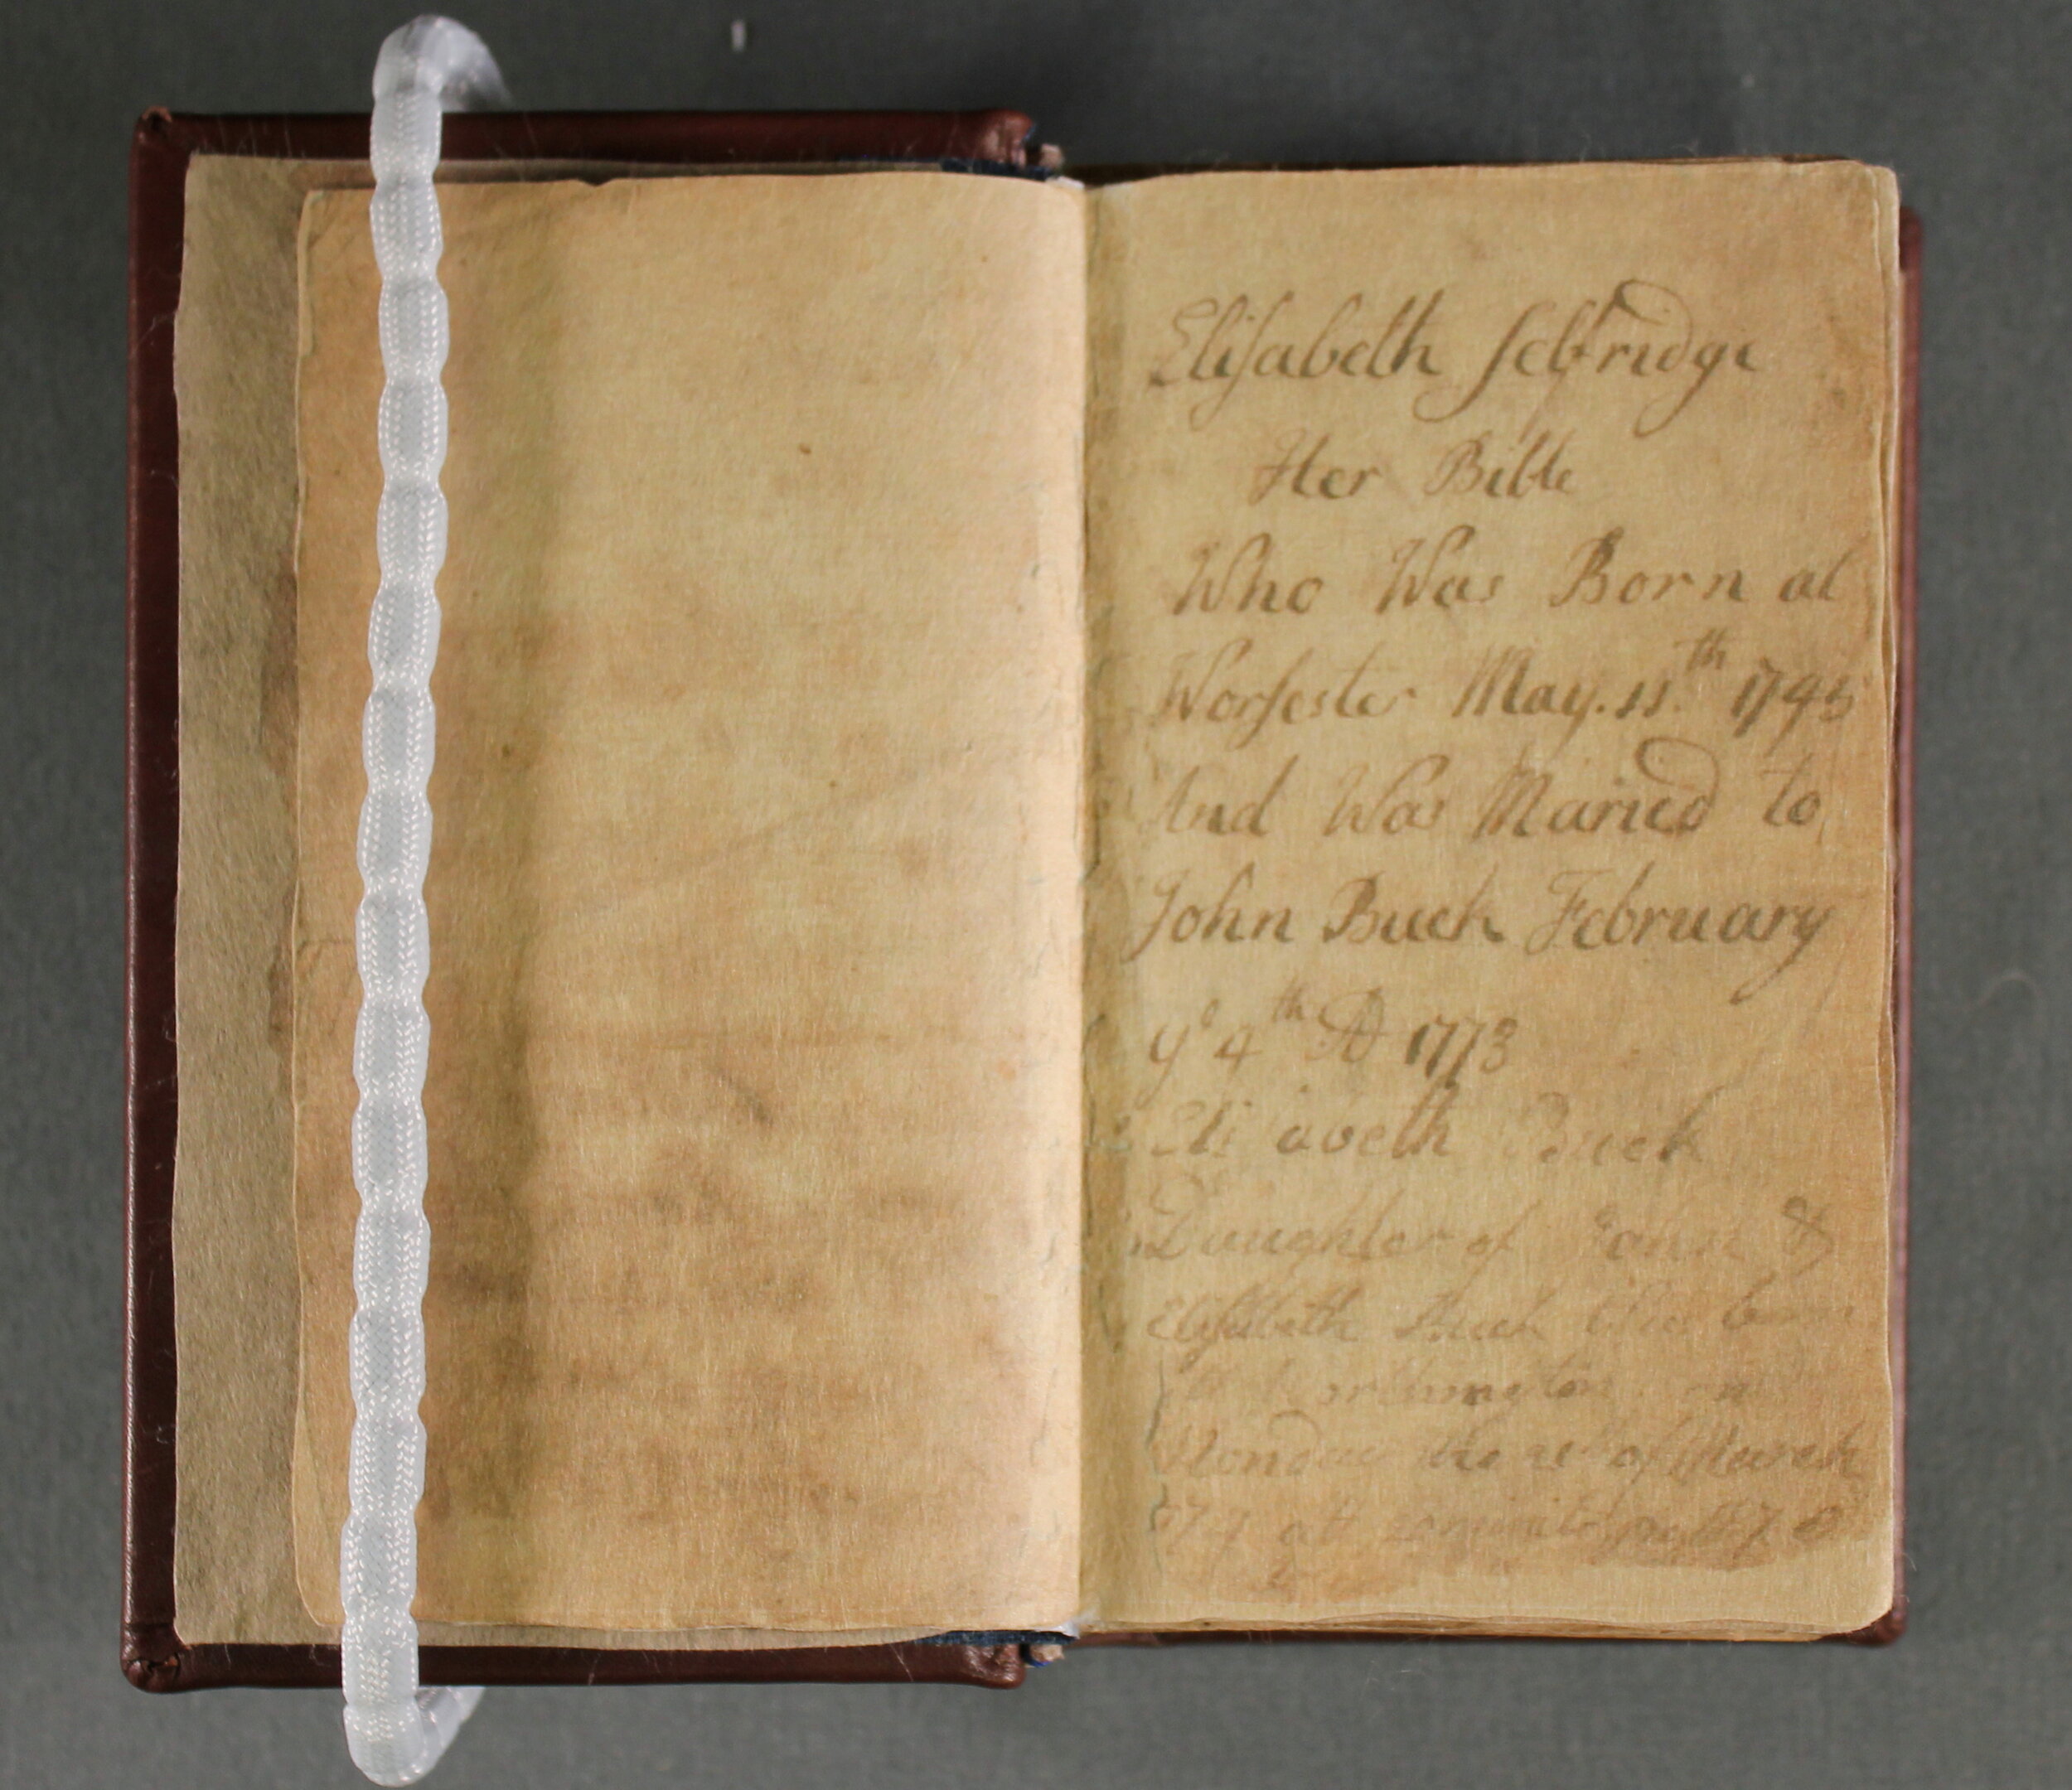 Eliſabeth ſelfridge
Her Bible
Who Was Born at
Worſester May. 11.th 1745
And Was Maried to
John Buck February
ye 4th AD 1773
Eli abeth Buck
Daughter of John &
Eliſabeth Buck born
orthington on
Monday the of March
att minits past 7